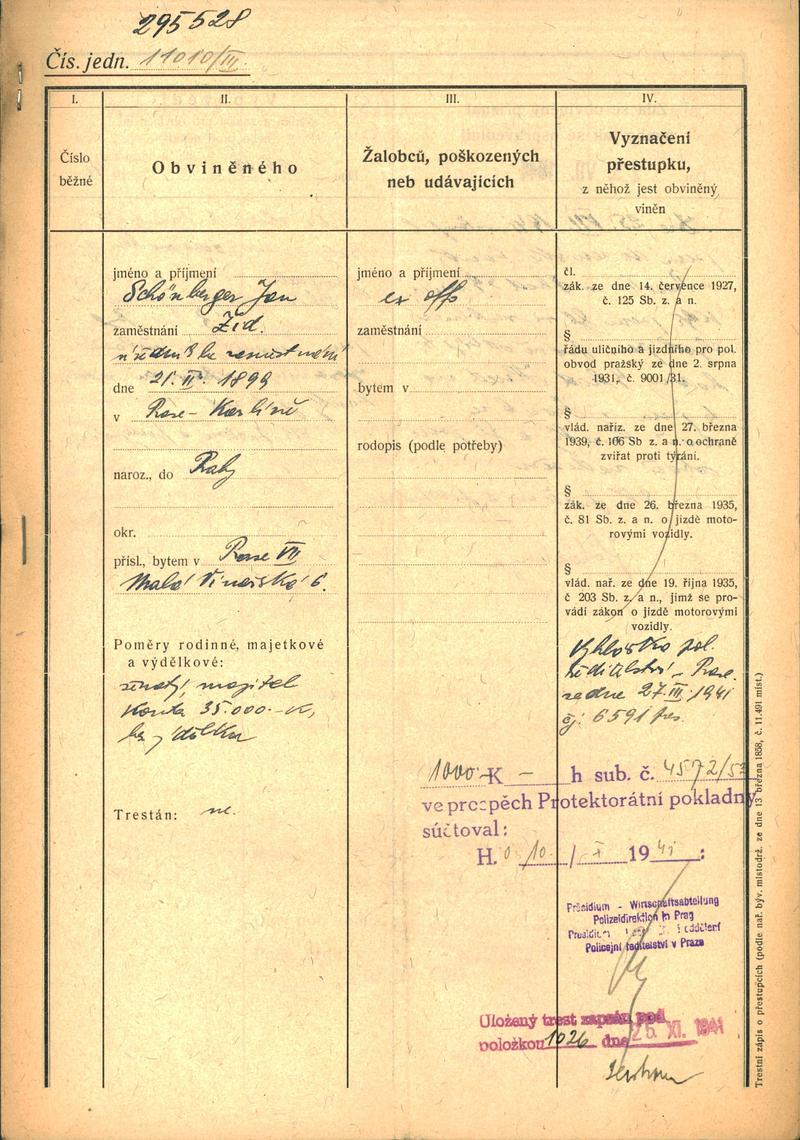 295528
Čís. jedn. 11010/III.
I.
II.
III.
IV.
Číslo
běžné
Obviněného
Žalobců, poškozených
neb udávajících
Vyznačení
přestupku,
z něhož jest obviněný
viněn
jméno a příjmení
Schönberger Jan
zaměstnání Žid.
úředník be zaměstnání
dne 21. II. 1899
v Praze - Karlíně
naroz., do Prahy
okr.
přísl., bytem v Praze VII
Malá Vinařská 6.
Poměry rodinné, majetkové
a výdělkové:
ženatý, majitel
konta 35.000.- K,
bez výdělku
Trestán: ne.
jméno a příjmení
ex offo
zaměstnání
bytem v
rodopis (podle potřeby)
čl.
zák. ze dne 14. července 1927,
č. 125 Sb. z. a n.
§
řádu uličního a jízdního pro pol.
obvod pražský ze dne 2. srpna
1931, č. 9001/31.
§
vlád. naříz. ze dne 27. března
1939, č. 106 Sb z. a n. o ochraně
zvířat proti týrání.
§
zák. ze dne 26. března 1935,
č. 81 Sb. z. a n. o jízdě moto-
rovými vozidly.
§
vlád. nař. ze dne 19. října 1935,
č 203 Sb. z. a n., jímž se pro-
vádí zákon o jízdě motorovými
vozidly.
Vyhláška pol.
ředitelství - Praze.
ze dne 27. III. 1941
čj: 6591 pres.
1000 K – h sub. č. 4572/
ve prospěch Protektorátní pokladny
súčtoval:
H. 10 / X 1941 :
Präsidium - Wirtschaftsabteilung
Polizeidirektion in Prag
Policejní ředitelství v Praze
Uložený trest zapsán pod
položkou 1026 dne 25. XI. 1941
Trestní zápis o přestupcích (podle nař. býv. místodrž. ze dne 13 března 1858, č. 11.491 míst.)